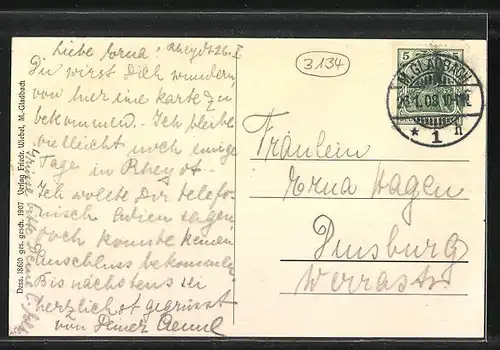 Liebe Erna! Rheydt 26. I
Du wirst Dich wundern,
von hier eine Karte zu
bekommen. Ich bleibe
vielleicht noch einige
Tage in Rheydt.
Ich wollte Dir telefo-
nisch Adieu sagen
doch konnte keinen
Anschluss bekommen.
Bis nächstens sei
herzlichst gegrüsst
von Deiner
3134
5 5
M. GLADBACH
26.1.08. 10-11
* 1 h
Fräulein
Erna Hagen
Duisburg
Werrastr
Dess. 18610 ges. gesch. 1907 Verlag Friedr. Wiebel, M.-Gladbach